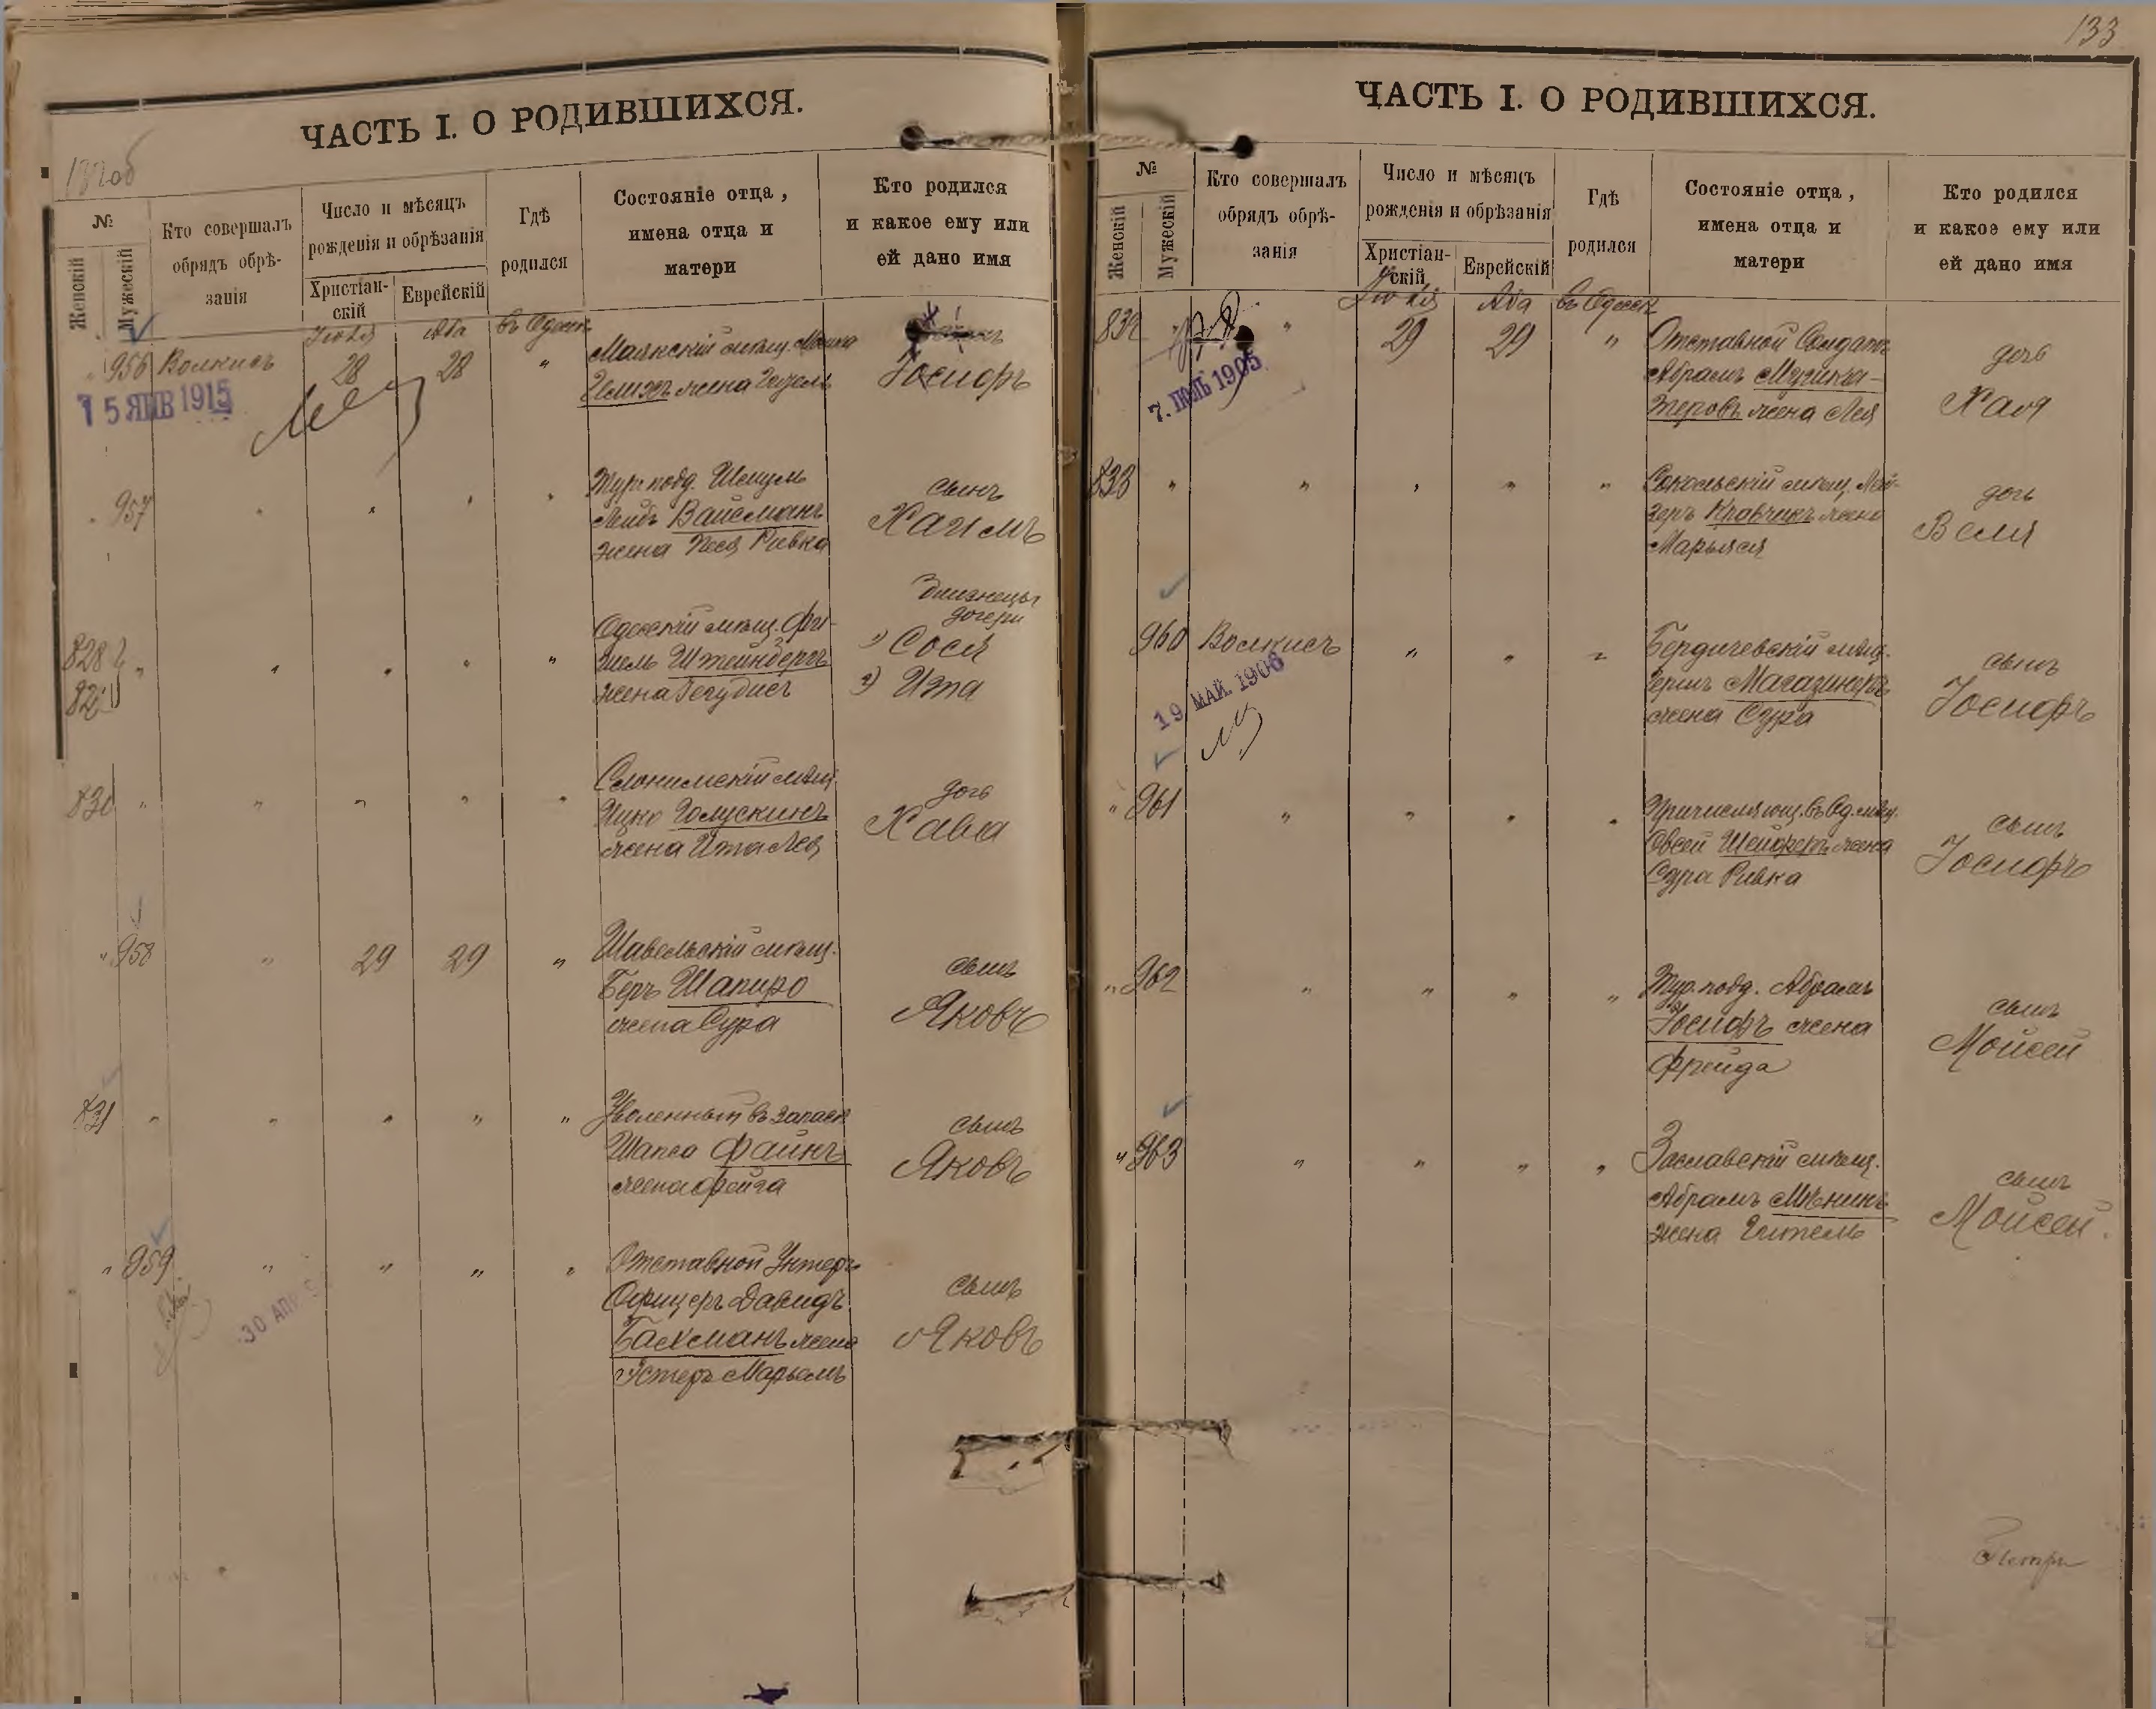 133
ЧАСТЬ I. О РОДИВШИХСЯ.
132об
№
Женскій
Мужескій
Кто совершалъ
обрядъ обрѣ-
занія
Число и мѣсяцъ
рожденія и обрѣзанія
Христіан-
скій
Еврейскій
Гдѣ
родился
Состояніе отца,
имена отца и
матери
Кто родился
и какое ему или
ей дано имя
Іюля Ава въ Одессѣ
" 956 Волкисъ 28 28 "
15 ЯНВ 1915
Маякскій мѣщ.
жена
Іосифъ
" 957 " " " "
Тур. подд. Шмуль
Лейбъ Вайсманъ
жена Песя Ривка
сынъ
Хаимъ
828
829
" " " " "
Одесскій мѣщ. Фи-
шель Штейнбергъ
жена Іегудисъ
Близнецы
дочери
1) Сося
2) Ита
830 " " " " "
Слонимскій мѣщ.
Ицко Голускинъ
жена Ита Лея
дочь
Хава
" 958 " 29 29 "
Шавельскій мѣщ.
Беръ Шапиро
жена Сура
сынъ
Яковъ
831 " " " " "
Уволенный въ запасъ
Шапса Файнъ
жена Фейга
сынъ
Яковъ
" 959 " " " "
30 АПР
Отставной Унтеръ
Офицеръ Давидъ
Баксманъ жена
Эстеръ Марьемъ
сынъ
Яковъ
ЧАСТЬ I. О РОДИВШИХСЯ.
№
Женскій
Мужескій
Кто совершалъ
обрядъ обрѣ-
занія
Число и мѣсяцъ
рожденія и обрѣзанія
Христіан-
скій
Еврейскій
Гдѣ
родился
Состояніе отца,
имена отца и
матери
Кто родился
и какое ему или
ей дано имя
Іюля Ава въ Одессѣ
832 " " 29 29 "
7. ІЮЛЬ 1905
Отставной Солдатъ
Абрамъ
жена Лея
дочь
Хая
833 " " " " "
Сокольскій мѣщ. Лей-
зеръ Кравчикъ жена
Марьяся
дочь
Веля
960 Волкисъ " " "
19 МАЙ. 1906
Бердичевскій мѣщ.
Гершъ Магазинеръ
жена Сура
сынъ
Іосифъ
" 961 " " " "
Причисляющ. въ Од. мѣщ.
Овсей Шейферъ жена
Сура Ривка
сынъ
Іосифъ
" 962 " " " "
Тур. подд. Абрамъ
Іосифъ жена
Фрейда
сынъ
Мойсей
" 963 " " " "
Заславскій мѣщ.
Абрамъ Мѣнинъ
жена Гитель
сынъ
Мойсей.